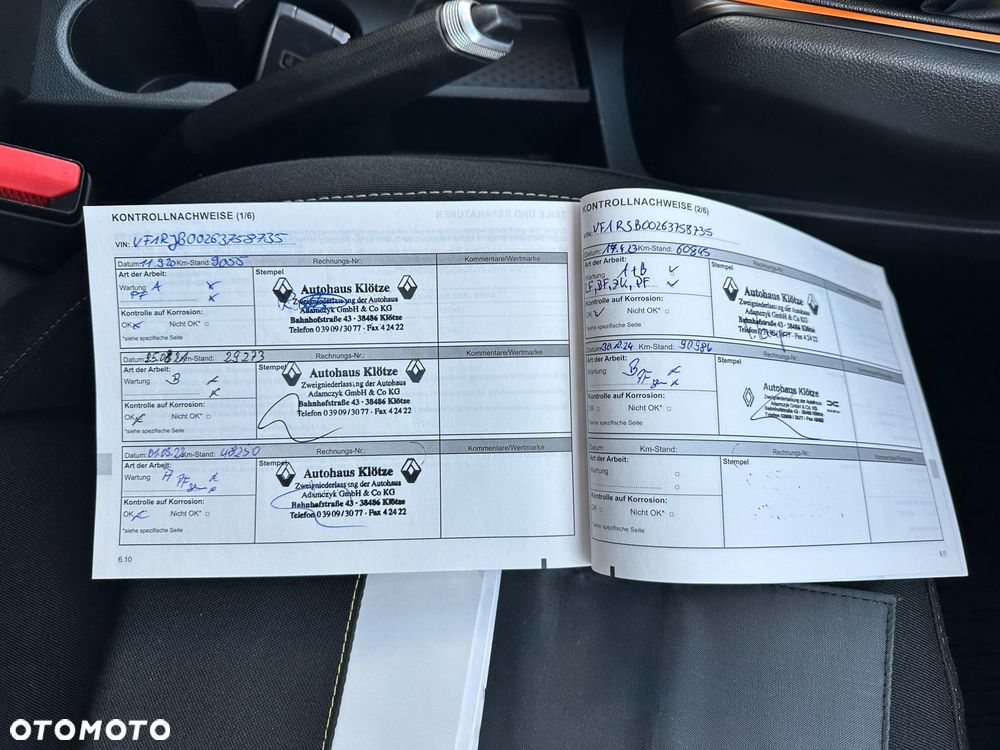 KONTROLLNACHWEISE (1/6)
VIN: VF1RJB00263758735
Datum: 11.9.20 Km-Stand: 9055 Rechnungs-Nr.: Kommentare/Wertmarke
Art der Arbeit: Stempel
Wartung A
PF
Kontrolle auf Korrosion:
OK Nicht OK*
*siehe spezifische Seite
Autohaus Klötze
Zweigniederlassung der Autohaus
Adamczyk GmbH & Co KG
Bahnhofstraße 43 · 38486 Klötze
Telefon 0 39 09 / 30 77 · Fax 4 24 22
Datum: Km-Stand: 29273 Rechnungs-Nr.: Kommentare/Wertmarke
Art der Arbeit: Stempel
Wartung B
Kontrolle auf Korrosion:
OK Nicht OK*
*siehe spezifische Seite
Autohaus Klötze
Zweigniederlassung der Autohaus
Adamczyk GmbH & Co KG
Bahnhofstraße 43 · 38486 Klötze
Telefon 0 39 09 / 30 77 · Fax 4 24 22
Datum: Km-Stand: 48250 Rechnungs-Nr.: Kommentare/Wertmarke
Art der Arbeit: Stempel
Wartung A PF
Kontrolle auf Korrosion:
OK Nicht OK*
*siehe spezifische Seite
Autohaus Klötze
Zweigniederlassung der Autohaus
Adamczyk GmbH & Co KG
Bahnhofstraße 43 · 38486 Klötze
Telefon 0 39 09 / 30 77 · Fax 4 24 22
6.10
KONTROLLNACHWEISE (2/6)
VIN: VF1RJB00263758735
Datum: 17.4.23 Km-Stand: 60845 Rechnungs-Nr.:
Art der Arbeit: Stempel
Wartung A+B
LF, BF, ZK, PF
Kontrolle auf Korrosion:
OK Nicht OK*
*siehe spezifische Seite
Autohaus Klötze
Zweigniederlassung der Autohaus
Adamczyk GmbH & Co KG
Bahnhofstraße 43 · 38486 Klötze
Datum: Km-Stand: 90986 Rechnungs-Nr.: Kommentare/Wertmarke
Art der Arbeit: Stempel
Wartung B
PF
Kontrolle auf Korrosion:
OK Nicht OK*
*siehe spezifische Seite
Autohaus Klötze
Zweigniederlassung der Autohaus
Adamczyk GmbH & Co. KG
Bahnhofstraße 43 · 38486 Klötze
Telefon 03909 / 3077 · Fax 42422
Datum: Km-Stand: Rechnungs-Nr.: Kommentare/Wertmarke
Art der Arbeit: Stempel
Wartung
Kontrolle auf Korrosion:
OK Nicht OK*
*siehe spezifische Seite
6.11
OTOMOTO